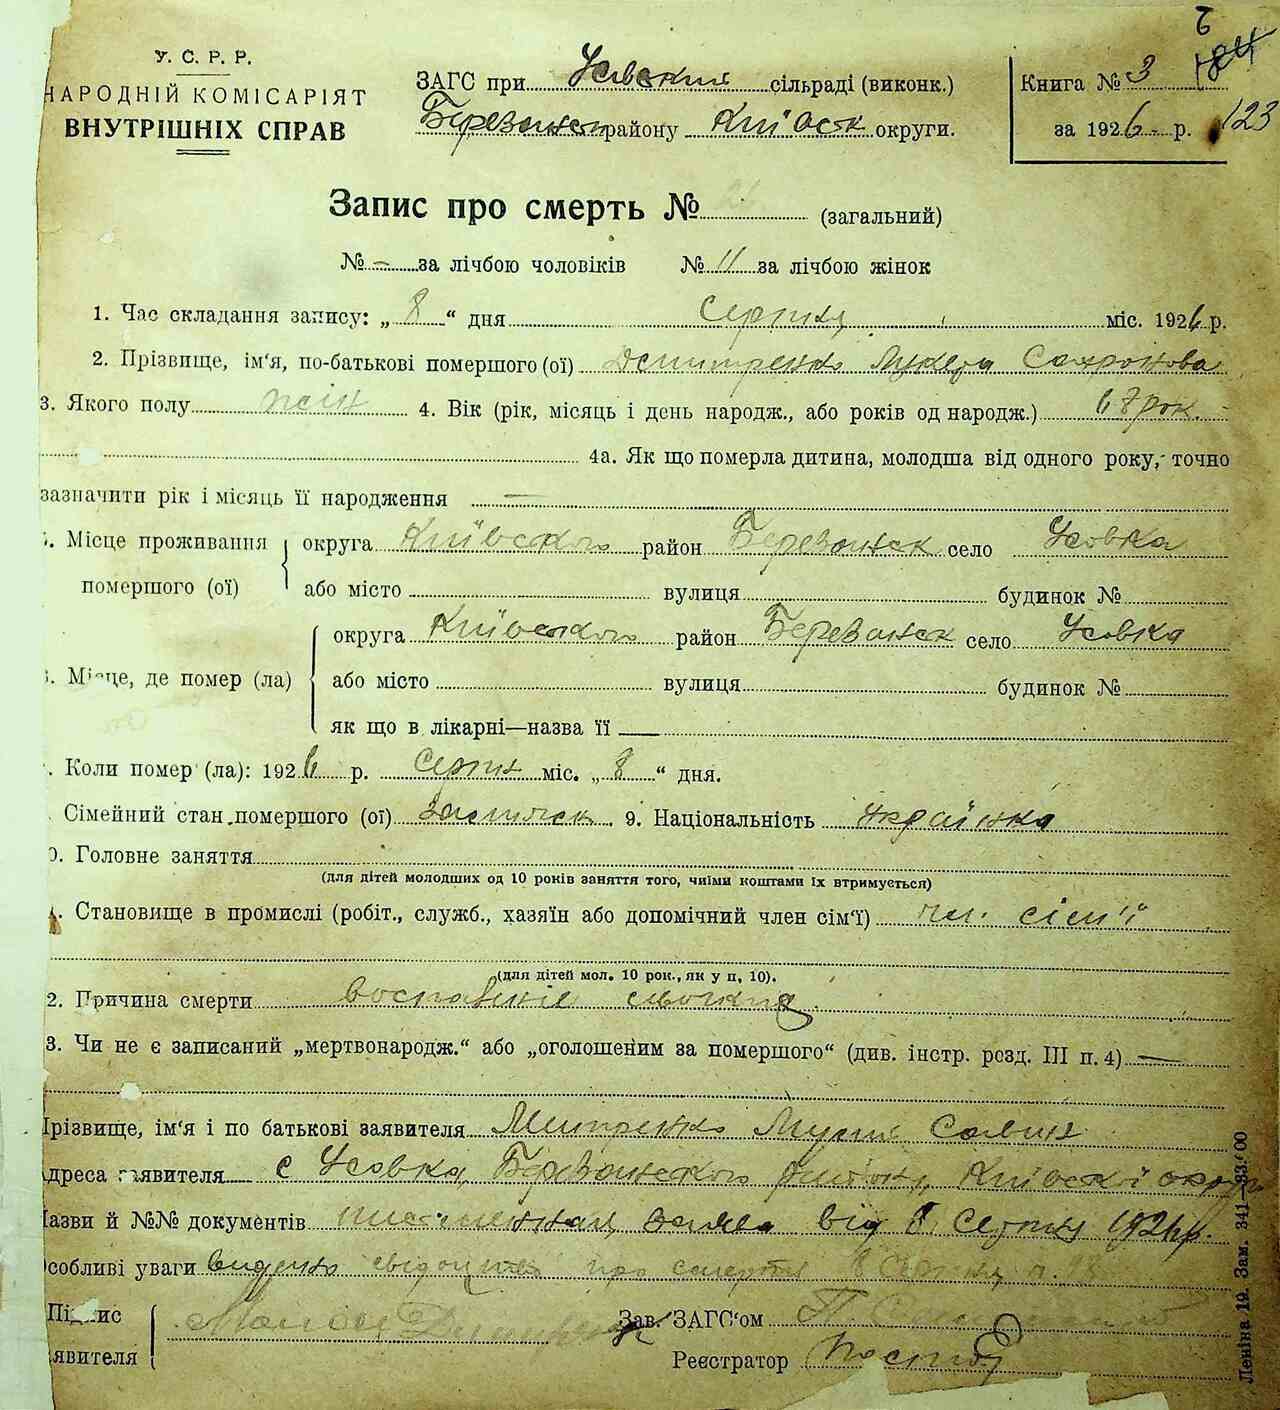 У. С. Р. Р.
НАРОДНІЙ КОМІСАРІЯТ
ВНУТРІШНІХ СПРАВ
ЗАГС при Усівский сільраді (виконк.)
Березанск району Київск округи.
Книга № 3
за 1926 р.
123
Запис про смерть № (загальний)
№ — за лічбою чоловіків № 11 за лічбою жінок
1. Час складання запису: „8“ дня Серпня міс. 1926 р.
2. Прізвище, ім'я, по-батькові помершого (ої) Дмитренко Лукера Сахронова
3. Якого полу жін 4. Вік (рік, місяць і день народж., або років од народж.) 67 рок.
4а. Як що померла дитина, молодша від одного року, точно
зазначити рік і місяць її народження —
Місце проживання помершого (ої) округа Київского район Березанск село Усовка
або місто вулиця будинок №
округа Київского район Березанск село Усовка
Місце, де помер (ла) або місто вулиця будинок №
як що в лікарні—назва її —
Коли помер (ла): 1926 р. Серпн міс. „8“ дня.
Сімейний стан помершого (ої) 9. Національність українка
0. Головне заняття
(для дітей молодших од 10 років заняття того, чиїми коштами їх втримується)
Становище в промислі (робіт., служб., хазяїн або допомічний член сім'ї) чл. сієм'ї
(для дітей мол. 10 рок., як у п. 10).
2. Причина смерти
3. Чи не є записаний „мертвонародж.“ або „оголошеним за помершого“ (див. інстр. розд. III п. 4) —
Прізвище, ім'я і по батькові заявителя Митренко
Адреса заявителя с Усовка, Березанского району, Київскої округи
Назви й №№ документів заява від 8 Серпня 1926 р.
Особливі уваги видано свідоцтво про смерть 8 Серпня
Підпис
заявителя
Зав. ЗАГС'ом
Реєстратор
Леніна 19. Зам. 341—33.000